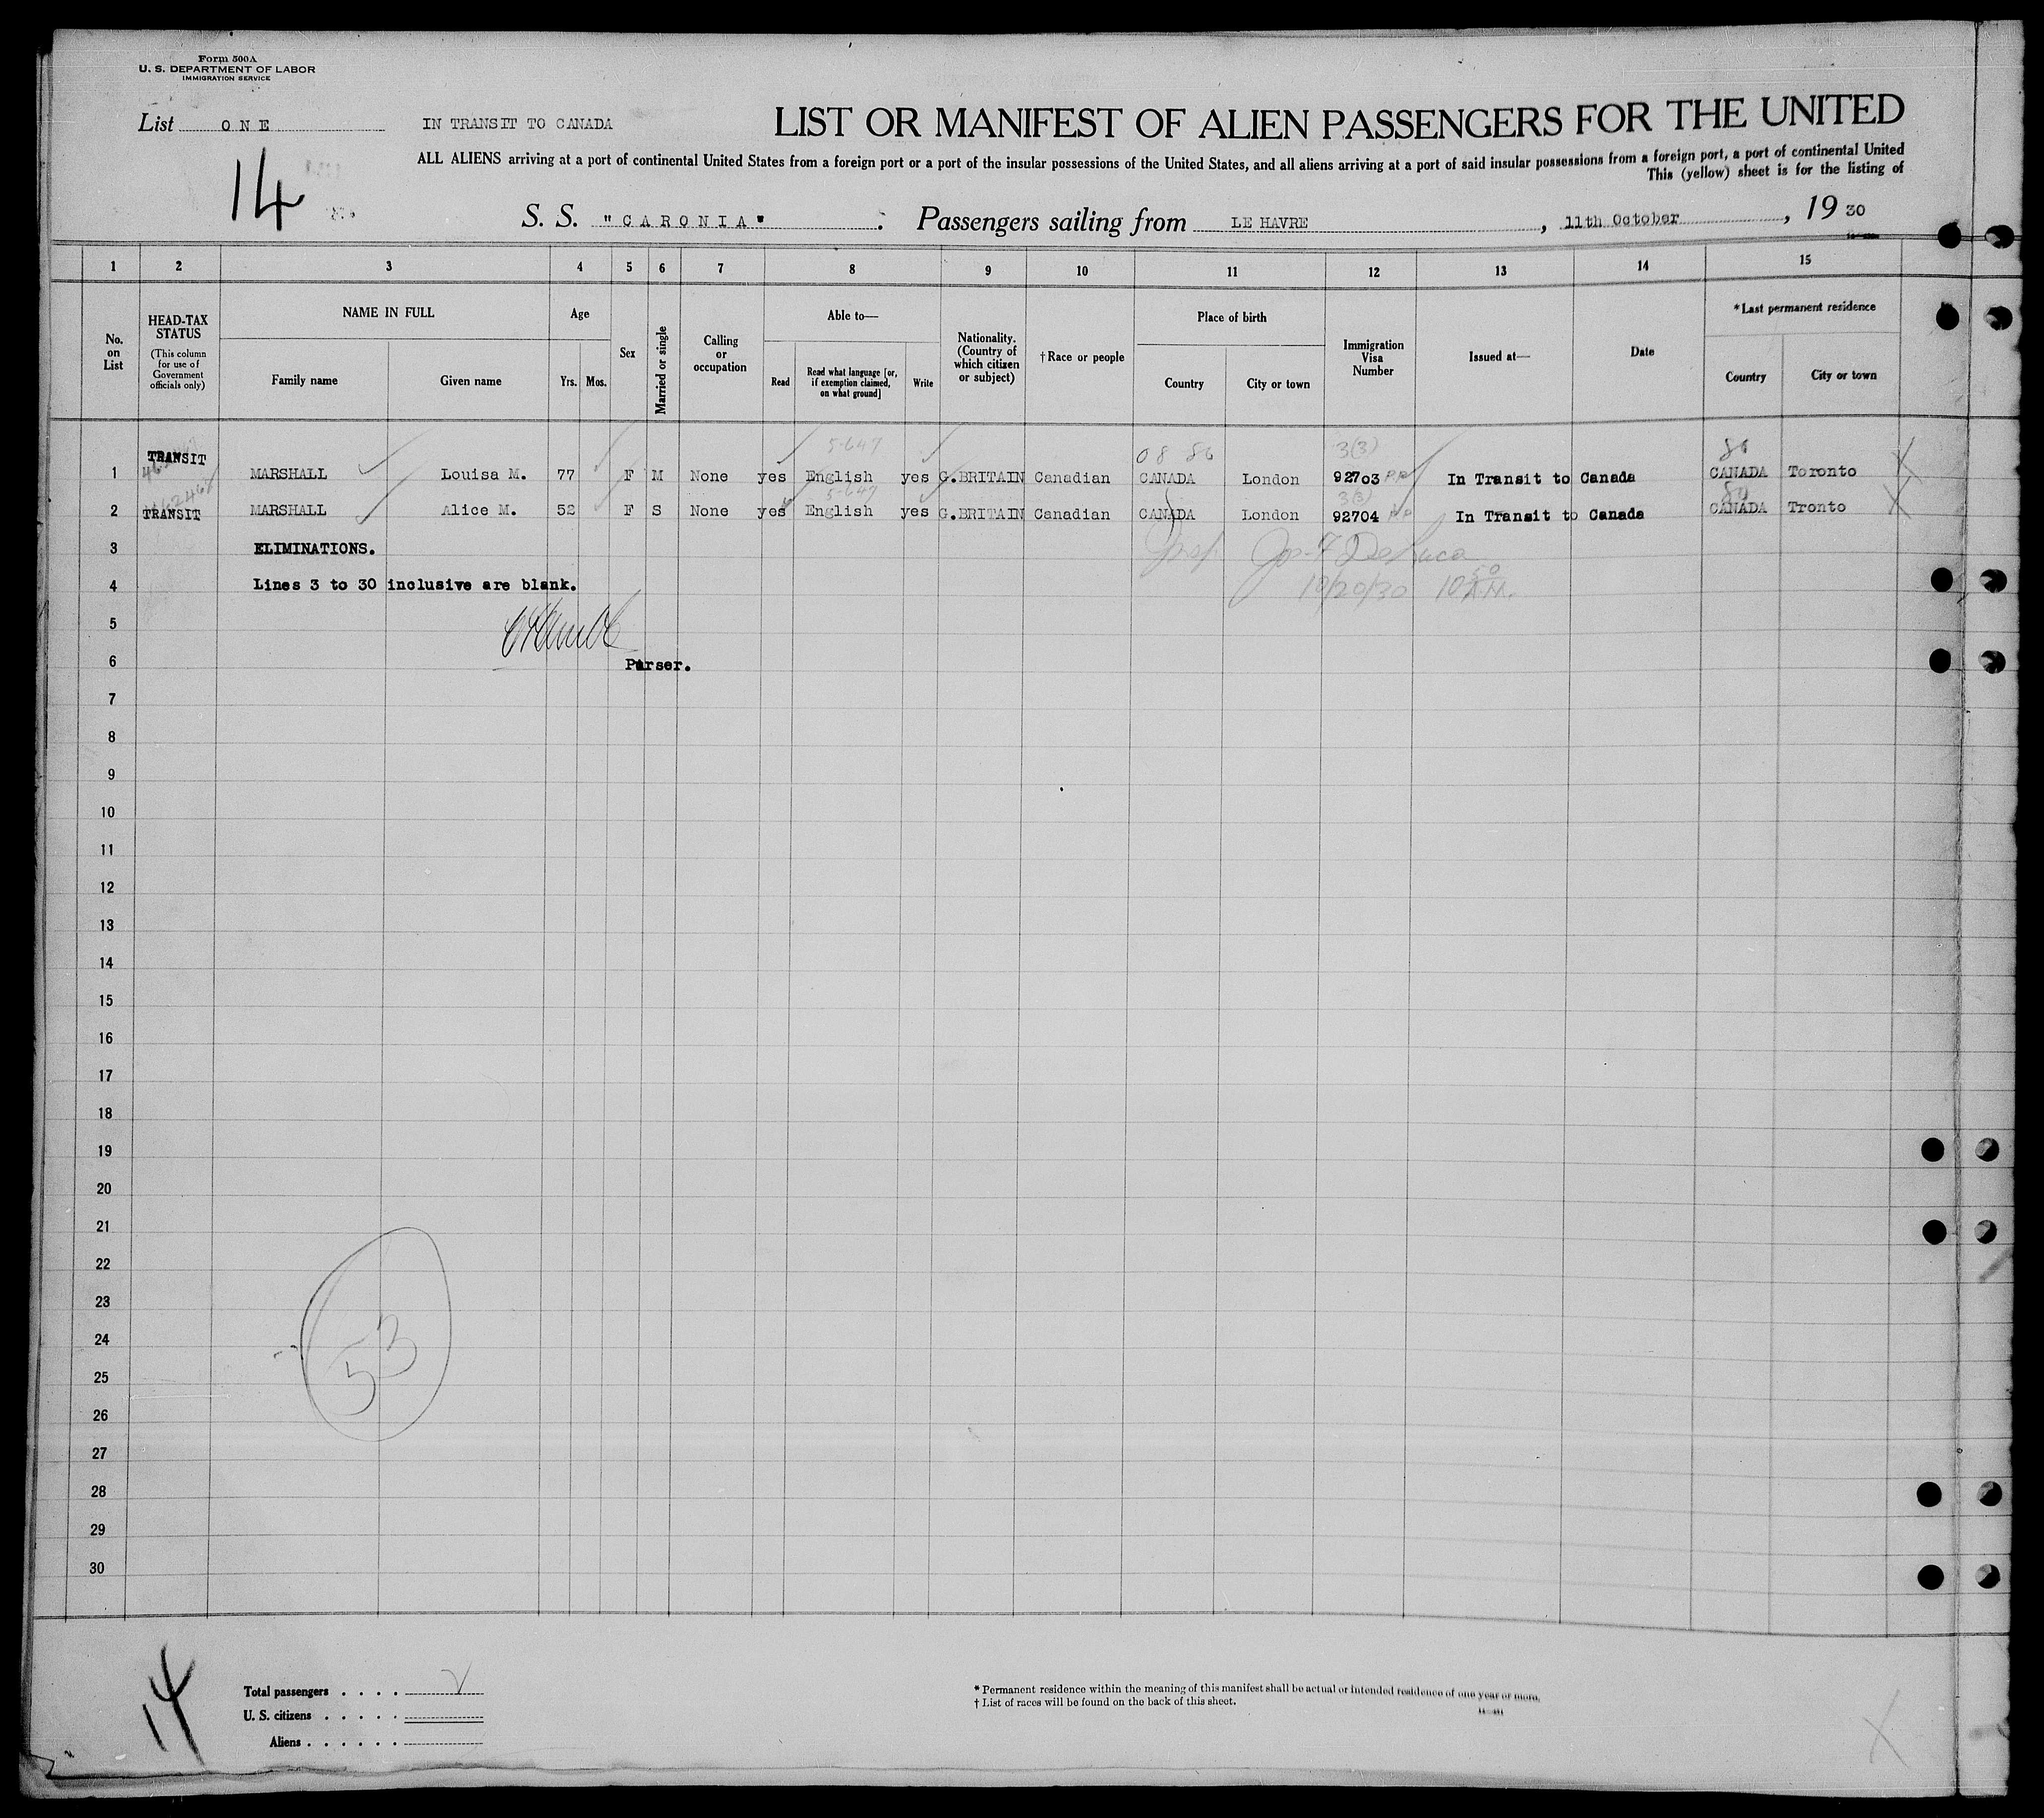 Form 500A
U. S. DEPARTMENT OF LABOR
IMMIGRATION SERVICE
List ONE IN TRANSIT TO CANADA LIST OR MANIFEST OF ALIEN PASSENGERS FOR THE UNITED
ALL ALIENS arriving at a port of continental United States from a foreign port or a port of the insular possessions of the United States, and all aliens arriving at a port of said insular possessions from a foreign port, a port of continental United
This (yellow) sheet is for the listing of
14
S. S. "CARONIA" Passengers sailing from LE HAVRE, 11th October, 19 30
1 2 3 4 5 6 7 8 9 10 11 12 13 14 15
No. on List
HEAD-TAX STATUS
(This column for use of Government officials only)
NAME IN FULL
Family name
Given name
Age
Yrs. Mos.
Sex
Married or single
Calling or occupation
Able to—
Read
Read what language [or, if exemption claimed, on what ground]
Write
Nationality. (Country of which citizen or subject)
†Race or people
Place of birth
Country
City or town
Immigration Visa Number
Issued at—
Date
*Last permanent residence
Country
City or town
5-647 08 86 3(3) 86
1 TRANSIT MARSHALL Louisa M. 77 F M None yes English yes G.BRITAIN Canadian CANADA London 92703 PP In Transit to Canada CANADA Toronto
5-647 3(3) 80
2 TRANSIT MARSHALL Alice M. 52 F S None yes English yes G.BRITAIN Canadian CANADA London 92704 PP In Transit to Canada CANADA Tronto
3 ELIMINATIONS. Insp. Jos. F DeLuca
4 Lines 3 to 30 inclusive are blank. 10/20/30 10 50 A.M.
5
6 Purser.
7
8
9
10
11
12
13
14
15
16
17
18
19
20
21
22
23
24 53
25
26
27
28
29
30
14
Total passengers . . . .
U. S. citizens . . . . .
Aliens . . . . . .
* Permanent residence within the meaning of this manifest shall be actual or intended residence of one year or more.
† List of races will be found on the back of this sheet.